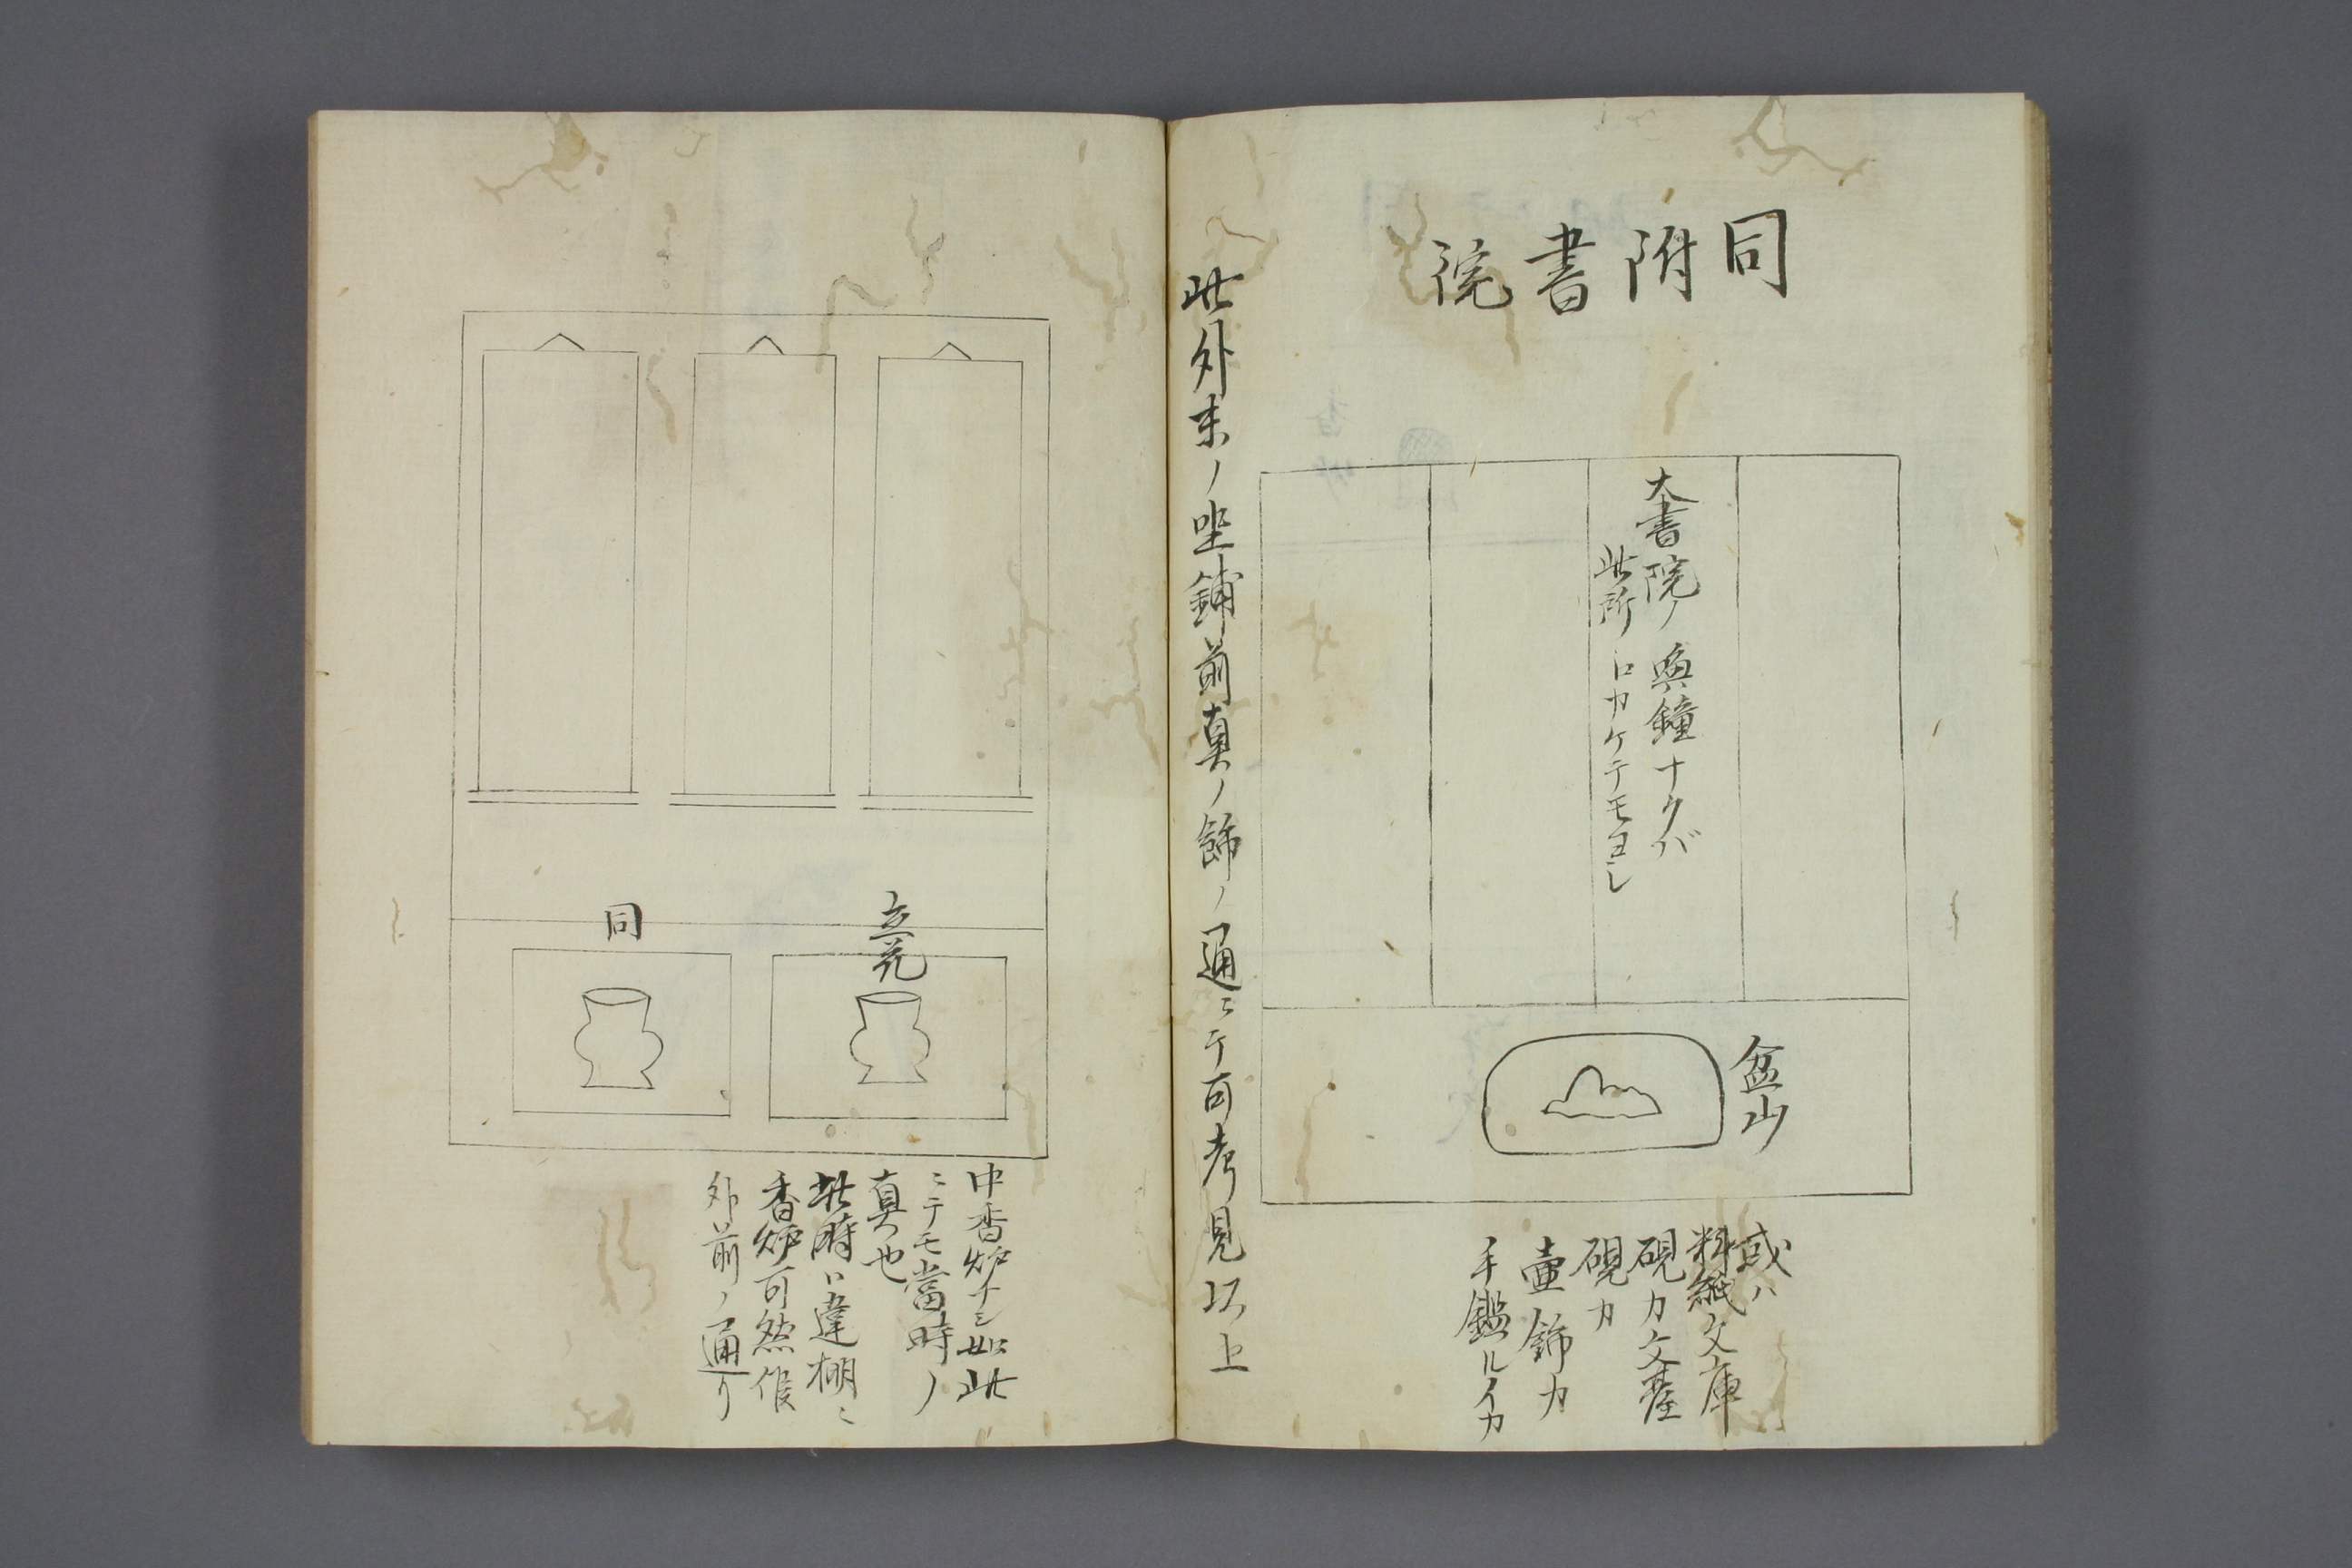 同附書院
大書院ノ喚鐘ナクバ
此所ニカケテモヨシ
盆山
或ハ
料紙文庫
硯カ文臺
硯カ
壷飾カ
手鑑ルイカ
此外末ノ坐鋪前真ノ飾ノ通ニテ可考見以上
立花
同
中香炉ナシ如此
ニテモ當時ノ
真也
此時ハ違棚ニ
香炉可然候
外前ノ通リ